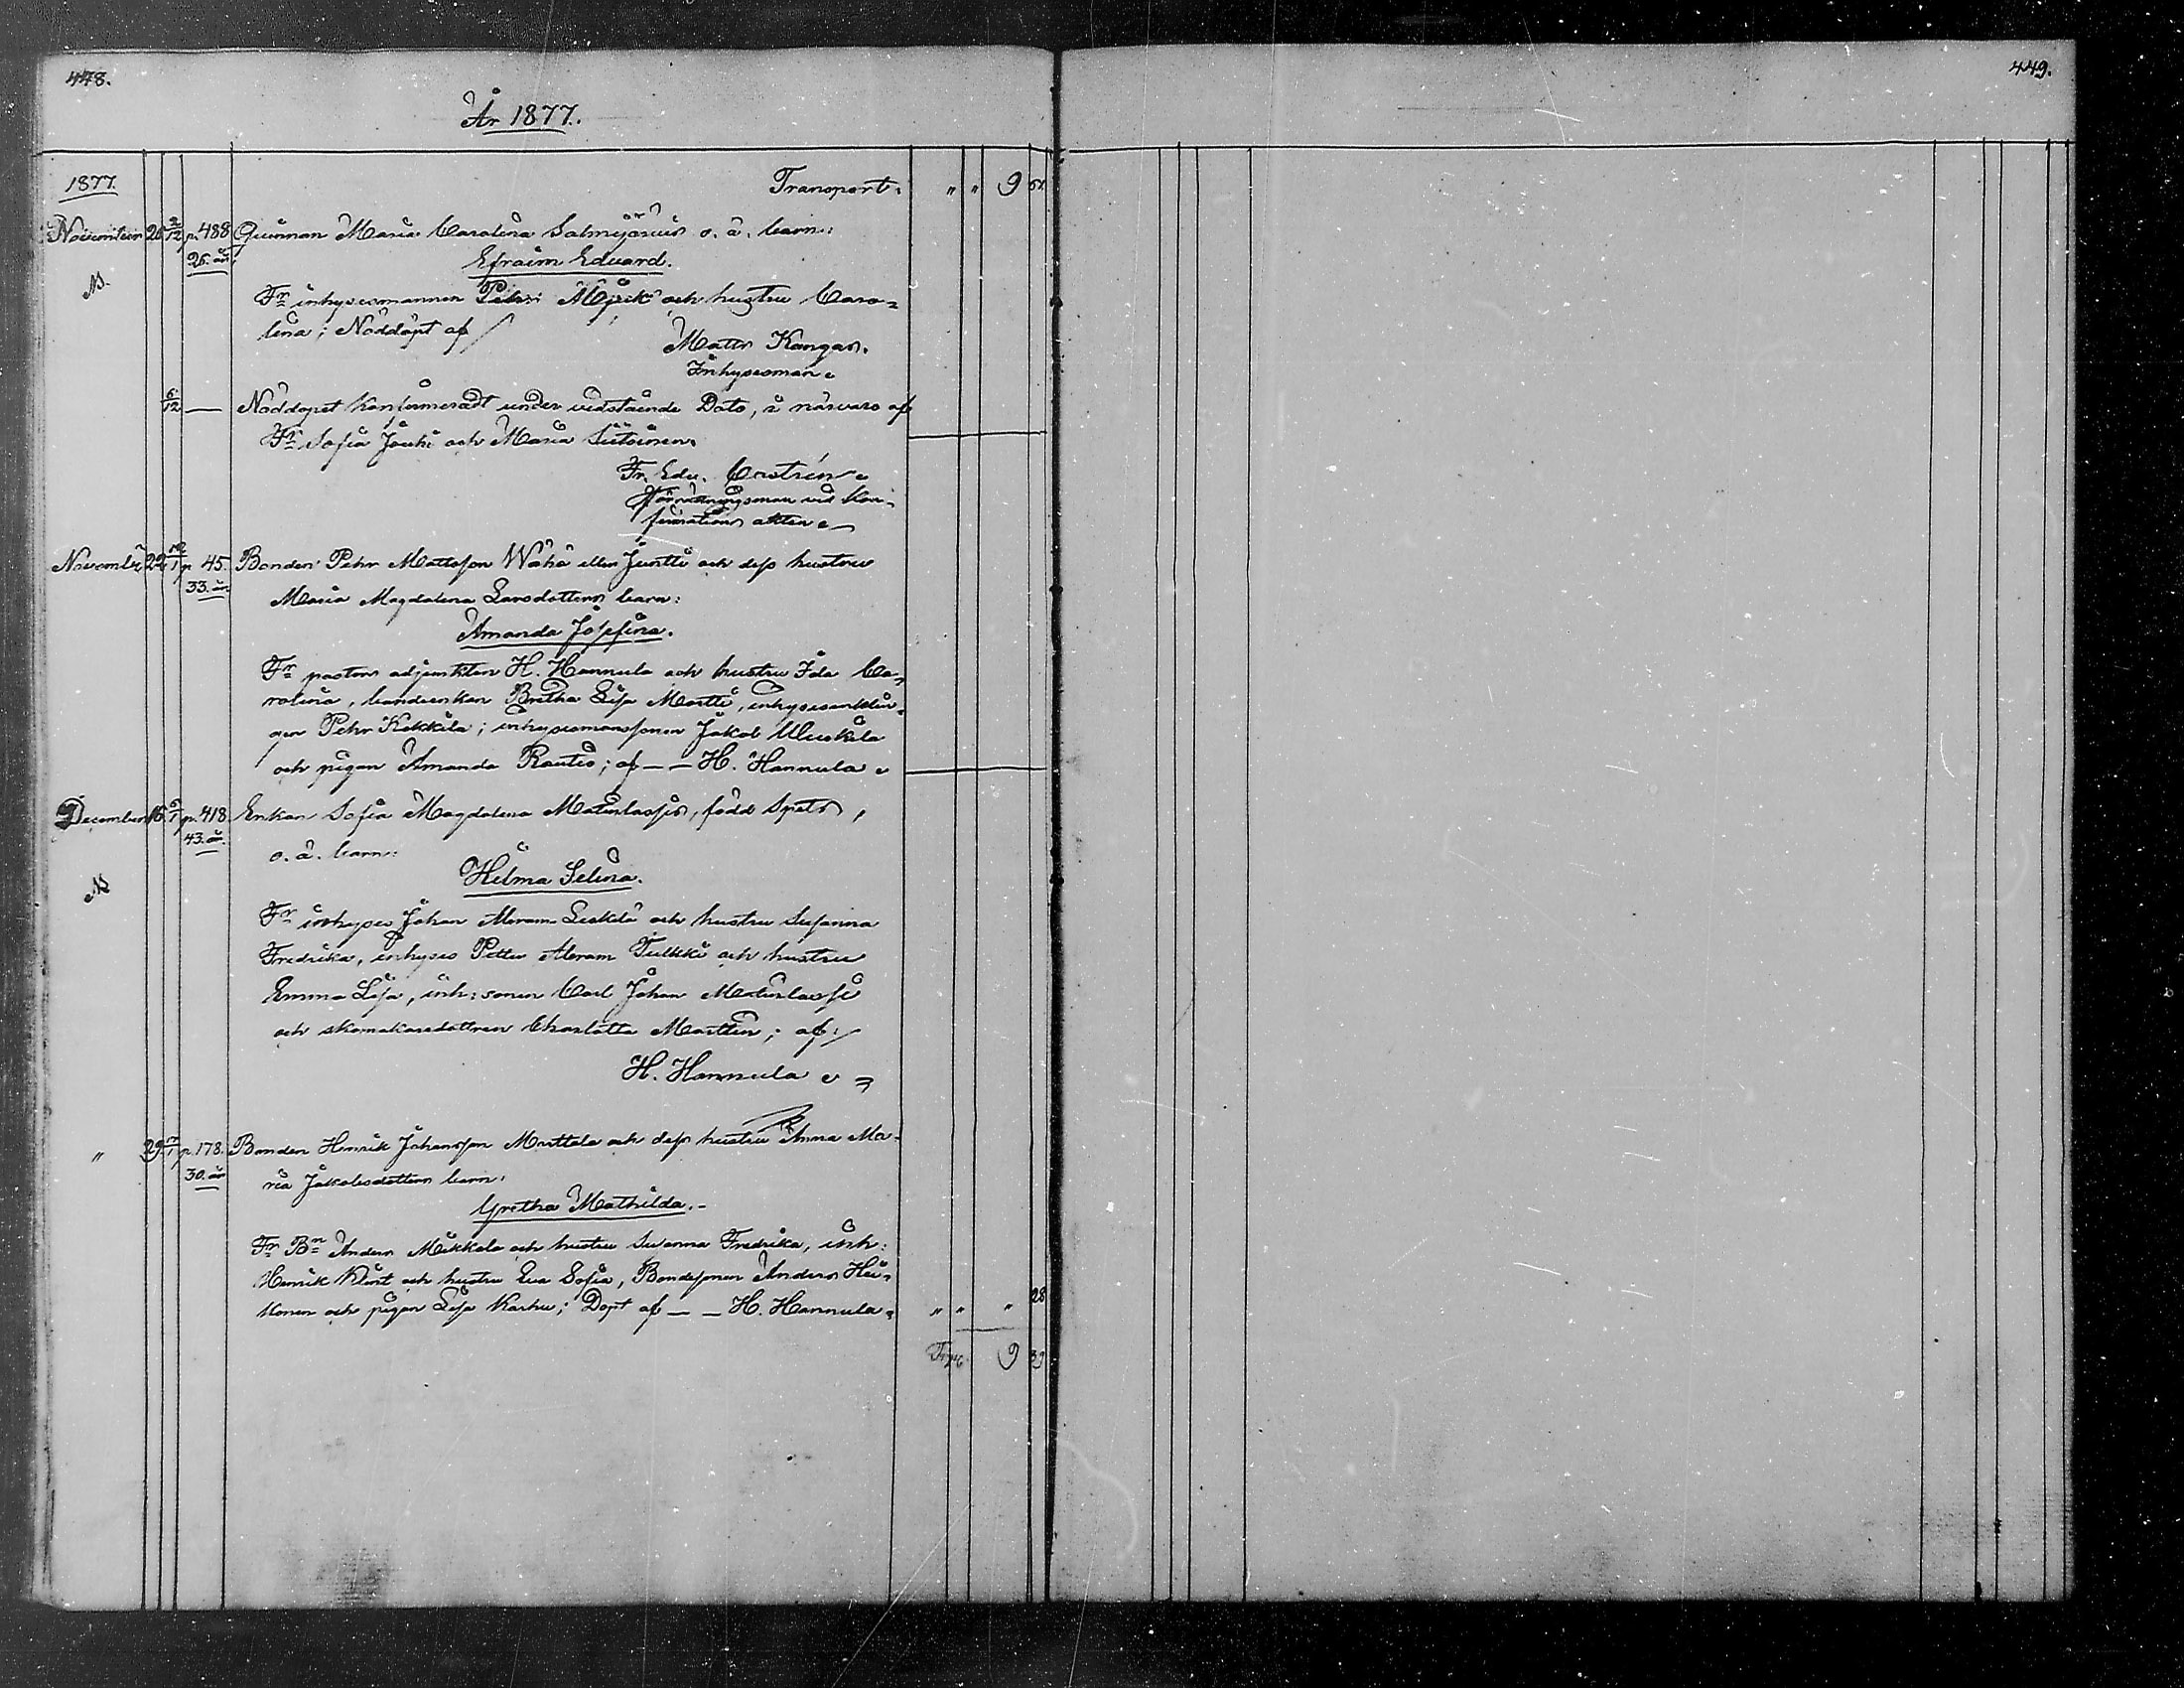 448.
449.
År 1877.
1877. Transport. " " 9
November 26 2/12 p. 488 Qvinnan Maria Carolina Salmijärvis o. ä. barn:
26. år Efraim Eduard.
N.
Fr inhysesmannen och hustru Caro-
lina; Nöddöpt af
Matts Kangas.
Inhysesman.
6/12 — Nöddopet konfirmeradt under vidstående Dato, i närvaro af
Fr Sofia Jouhi och Maria Siitoinen.
Fr. Edv. Castrén
Förrättningsman vid Kon-
firmations akten.
November p. 45. Bonden Pehr Mattsson Wähä eller Juntti och dess hustru
33. år Maria Magdalena Larsdotters barn:
Amanda Josefina.
Fr pastors adjunkten H. Hannula och hustru Ida Ca-
rolina, bondeenkan Bretha Lisa Martti, inhysesenklin-
gen Pehr Kekkila; inhysesmanssonen Jakob
och pigan Amanda Rautio; af — — H. Hannula
December 16 6/1 p. 418. Enkan Sofia Magdalena Maturlassis, född Spets,
43. år. o. ä. barn:
N
Hilma Selina.
Fr inhyses Johan Abram och hustru Susanna
Fredrika, inhyses Petter Abram Tulkki och hustru
Emma Lisa, inh: sonen Carl Johan Maturlassi
och skomakaredottren Charlotta Marttin; af:
H. Hannula
" 29 p. 178. Bonden Henrik Johansson Marttala och dess hustru Anna Ma-
30. år ria Jakobsdotters barn:
Gretha Mathilda.-
Fr Bn Anders Mikkela och hustru Susanna Fredrika, inh:
Henrik och hustru Eva Sofia, Bondesonen Anders Hei-
konen och pigan Lisa Karhu; Döpt af — — H. Hannula. " " " 28
9 39